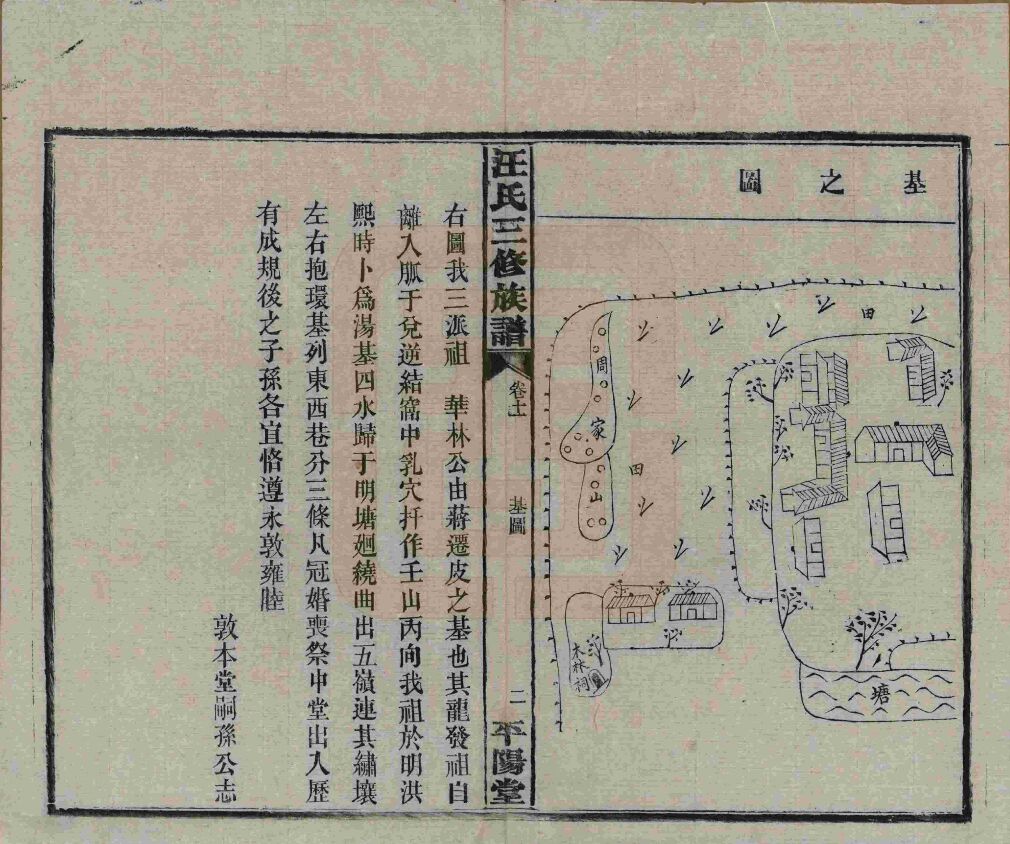 基之圖
田
周
家
山
田
木林祠
塘
汪氏三修族譜
卷十一
基圖
二
平陽堂
右圖我三派祖　華林公由蔣遷皮之基也其龍發祖自
離入脈于兌逆結窩中乳穴扦作壬山丙向我祖於明洪
熙時卜爲湯基四水歸于明塘廻繞曲出五嶺連其繡壤
左右抱環基列東西巷分三條凡冠婚喪祭中堂出入歷
有成規後之子孫各宜恪遵永敦雍睦
敦本堂嗣孫公志